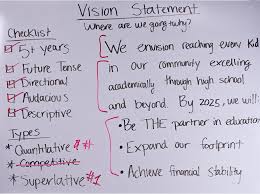 Vision Statement
Where are we going & why?
Checklist
5+ years
Future Tense
Directional
Audacious
Descriptive
Types
* Quantitative # #!
* Competitive
* Superlative #1
We envision reaching every kid
in our community excelling
academically through high school
and beyond. By 2025, we will:
• Be THE partner in education
• Expand our footprint
• Achieve financial stability